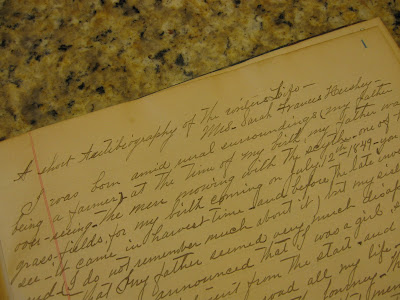 1
A short Autobiography of the writers Life—
Mrs. Sarah Frances Hershey—
I was born amid rural surroundings, (my father
being a farmer) at the time of my birth, my father was
over-seeing the men mowing with the scythe one of the
grass-fields, for my birth coming on July 12th 1849—you
see it came in harvest time and before the late
and I do not remember much about it) but my
that my father seemed very much
announced that I was a girl
from the start and
road all my life—
journey. The